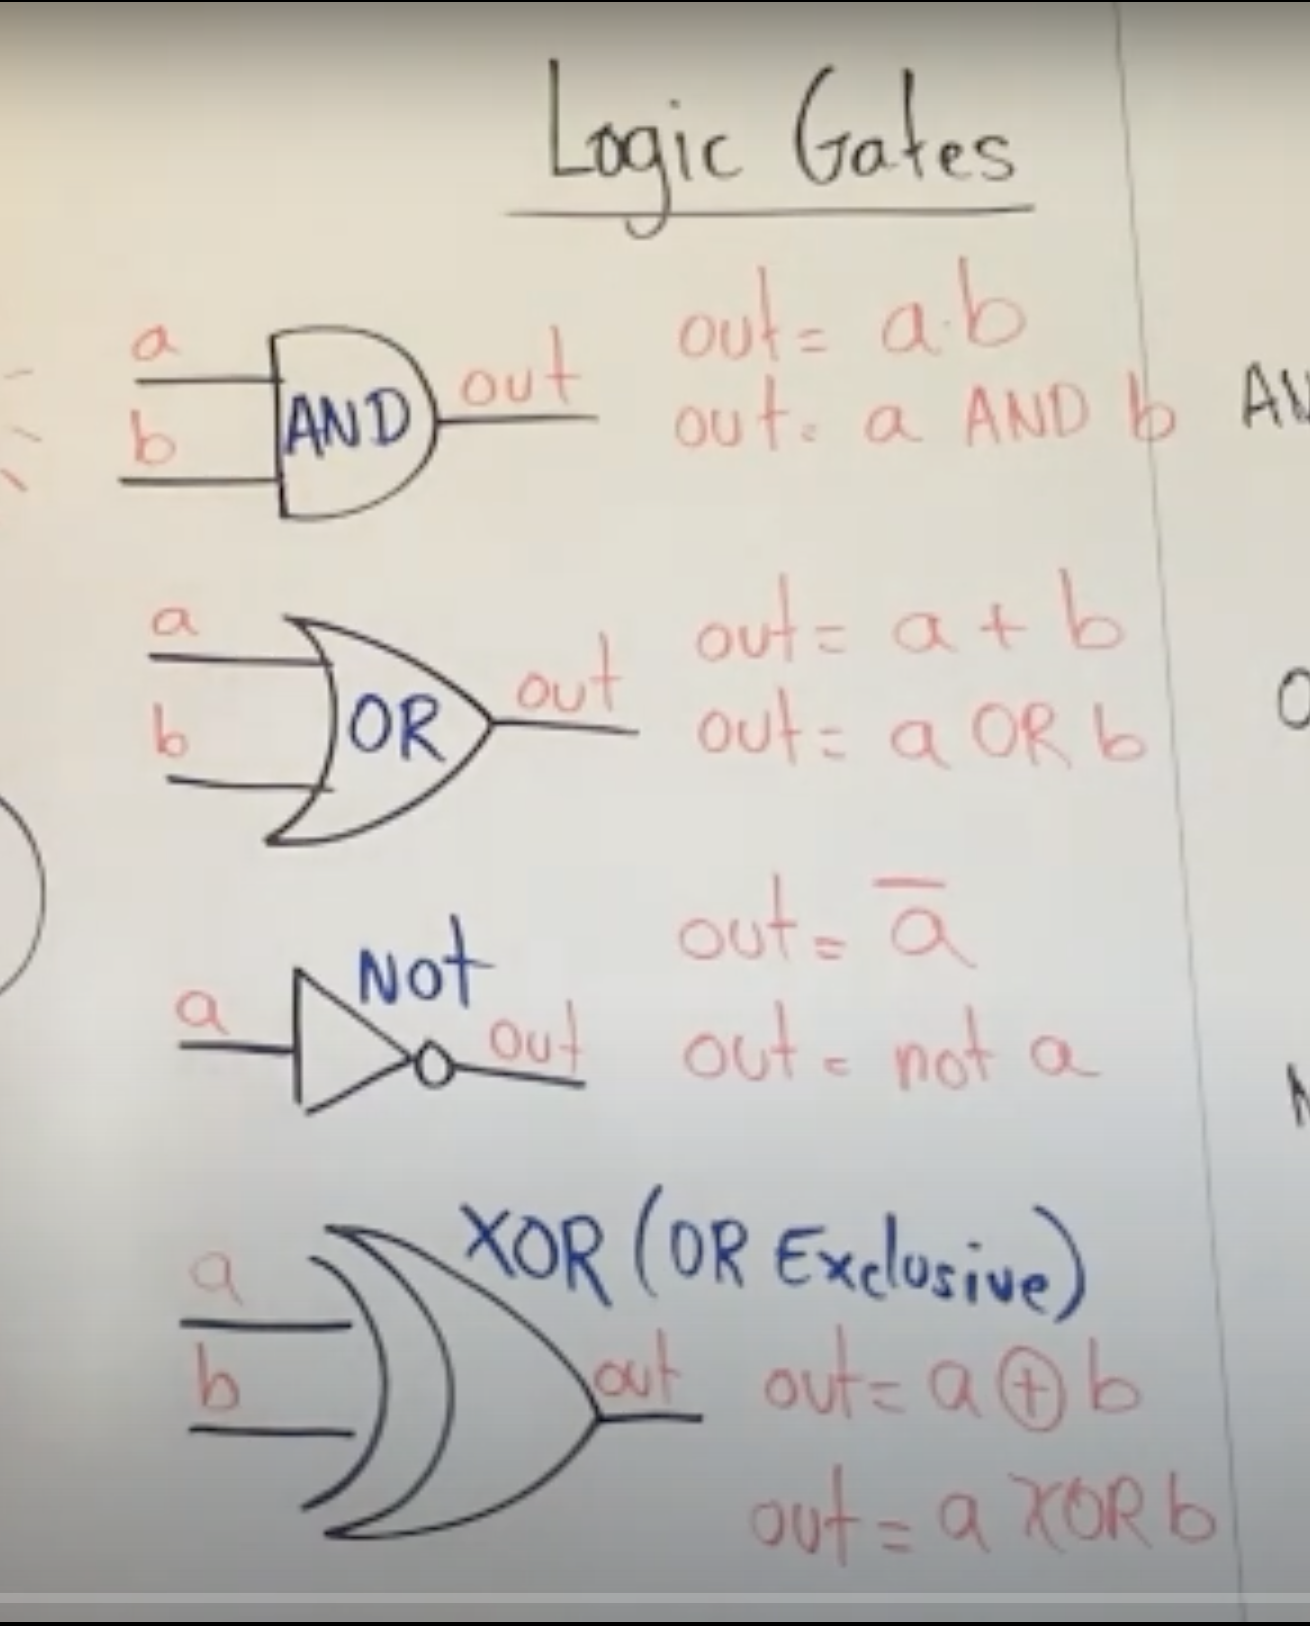 Logic Gates
a
b
AND
out
out = a.b
out = a AND b
a
b
OR
out
out = a + b
out = a OR b
a
Not
out
out = a̅
out = not a
a
b
XOR (OR Exclusive)
out
out = a ⊕ b
out = a XOR b